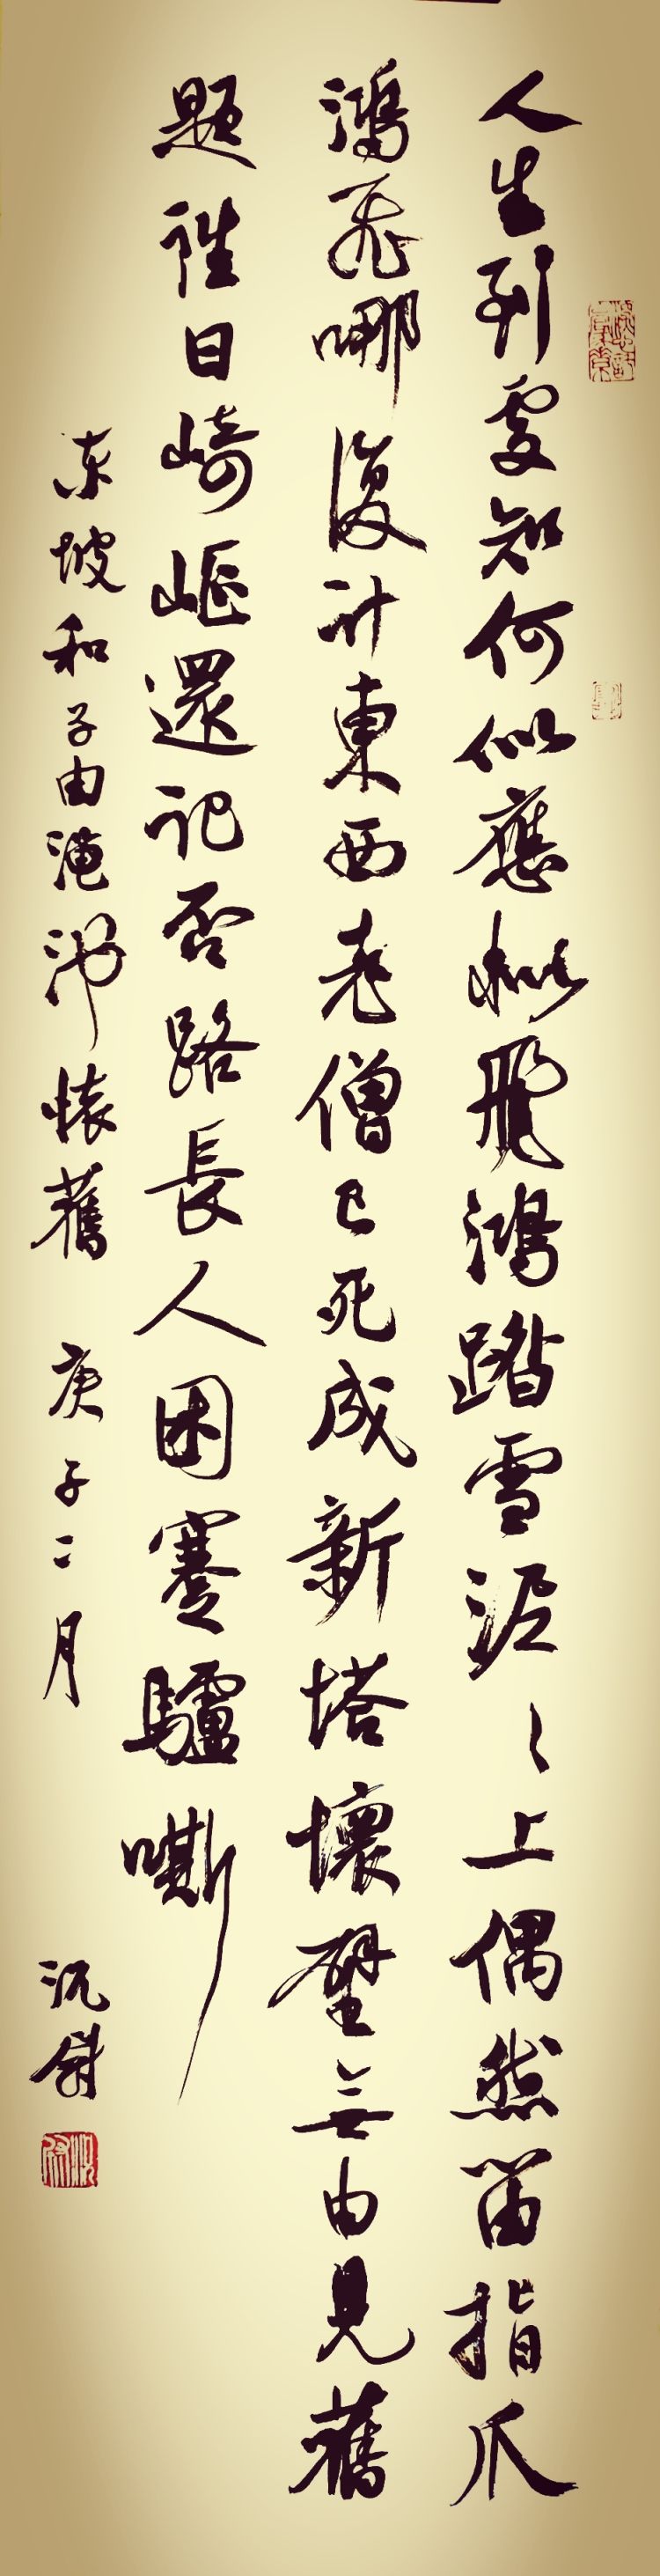 人生到處知何似應似飛鴻踏雪泥〻上偶然留指爪
鴻飛哪復計東西老僧已死成新塔壞壁無由見舊
題往日崎嶇還記否路長人困蹇驢嘶
东坡和子由澠池懷舊 庚子二月